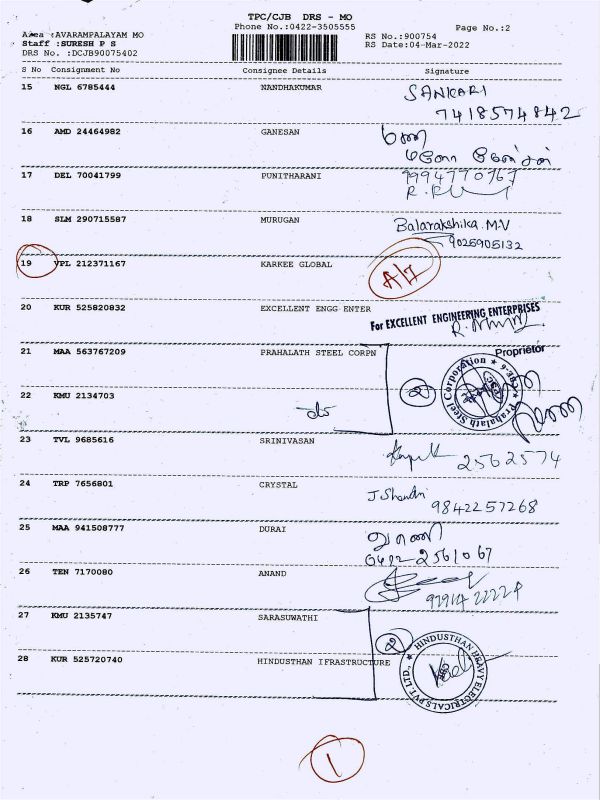 TPC/CJB DRS - MO
Phone No.:0422-3505555
Page No.:2
Area :AVARAMPALAYAM MO
RS No.:900754
Staff :SURESH P S
RS Date:04-Mar-2022
DRS No. :DCJB90075402
S No Consignment No Consignee Details Signature
15 NGL 6785444 NANDHAKUMAR SANKARI
7418574842
16 AMD 24464982 GANESAN
17 DEL 70041799 PUNITHARANI 9994770767
18 SLM 290715587 MURUGAN Balarakshika.M.V
9025905132
19 VPL 212371167 KARKEE GLOBAL
20 KUR 525820832 EXCELLENT ENGG ENTER
For EXCELLENT ENGINEERING ENTERPRISES
Proprietor
21 MAA 563767209 PRAHALATH STEEL CORPN
2
Prahalath Steel Corporation
22 KMU 2134703
23 TVL 9685616 SRINIVASAN 2562574
24 TRP 7656801 CRYSTAL J.Shandri
9842257268
25 MAA 941508777 DURAI
0422-2561067
26 TEN 7170080 ANAND
27 KMU 2135747 SARASUWATHI
2
28 KUR 525720740 HINDUSTHAN IFRASTRUCTURE
HINDUSTHAN HEAVY ELECTRICALS PVT. LTD.,
1